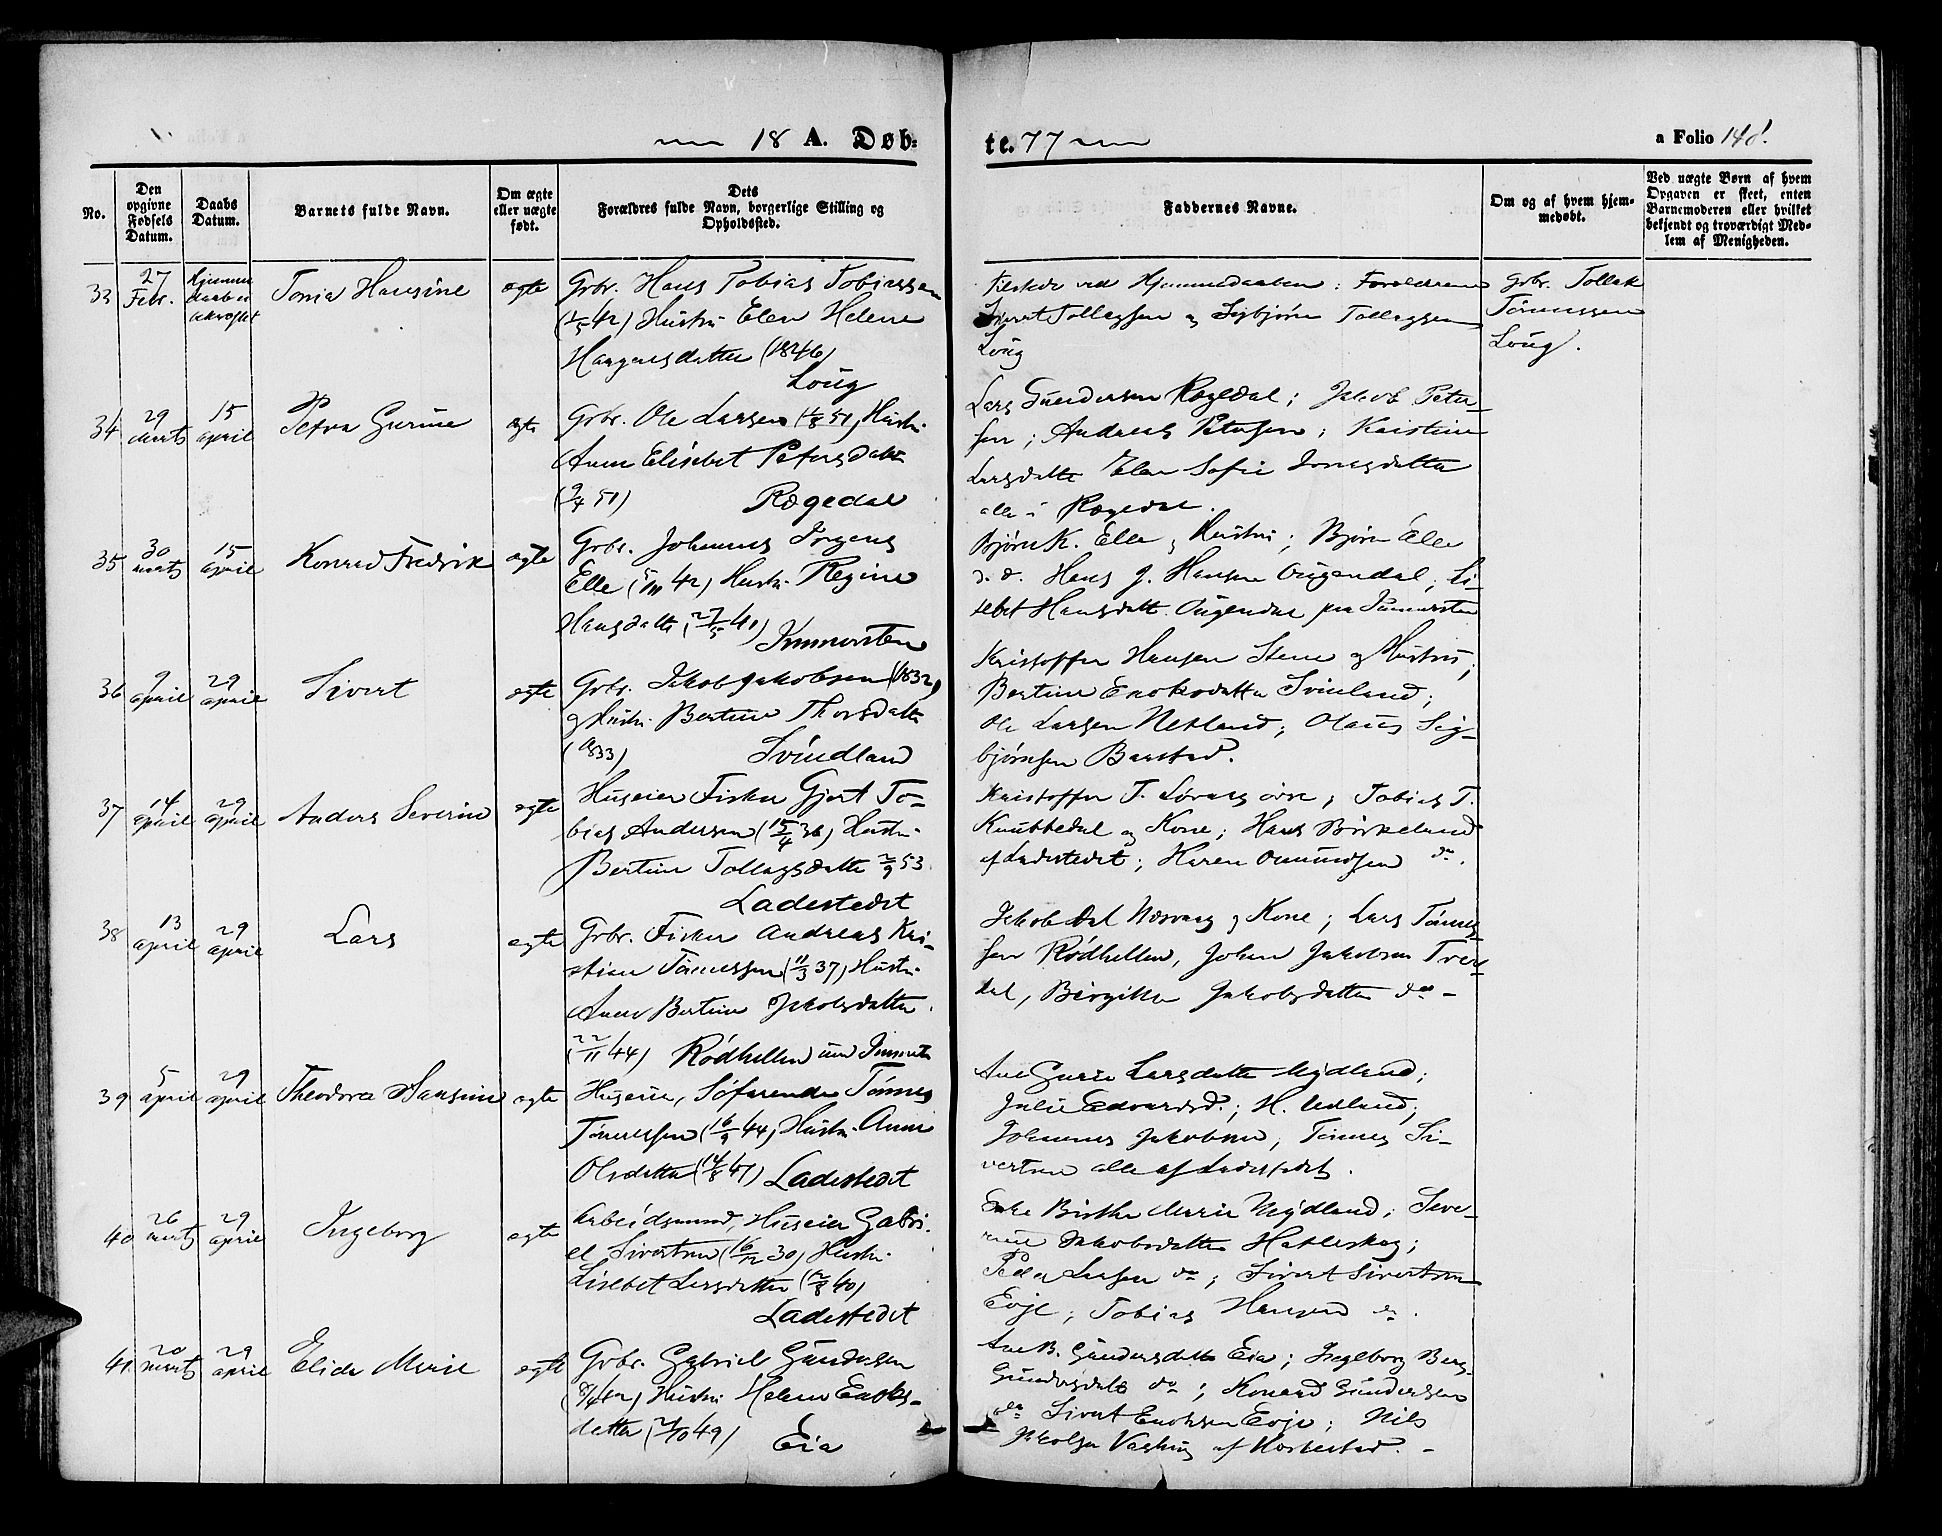 18 A. Døb-
te. 77
a Folio 148.
No.
Den opgivne Fødsels Datum.
Daabs Datum.
Barnets fulde Navn.
Om ægte eller uægte født.
Dets Forældres fulde Navn, borgerlige Stilling og Opholdssted.
Faddernes Navne.
Om og af hvem hjem-
medøbt.
Ved uægte Børn af hvem
Opgaven er skeet, enten
Barnemoderen eller hvilket
bekjendt og troværdigt Med-
lem af Menigheden.
33
27 Febr.
Hjemme
Tonia Hansine
ægte
Gbr. Hans Tobias Tobiassen
Hustru Elen Helene
(1846)
Loug
Hjemmedaaben: Forældrene
Sivert Tollagsen og Sigbjørn Tollagsen
Loug
Gbr. Tollak
Tønnessen
Loug.
34
29 marts
15 april
Petra Gurine
ægte
Gbr. Ole Larsen (51) Hustr.
Anne Elisebet Petersdatt
(9/4 51) Rægedal
Lars Gundersen Rægedal; Jakob Peter-
sen; Andreas Petersen; Kristine
Larsdatte Elen Sofie Jonasdatte
alle i Rægedal.
35
30 marts
15 april
Konrad Fredrik
ægte
Gbr. Johannes
Elle (42) Hustr. Regine
Hansdatte (27/5 40)
Bjørn K. Elle og Hustru; Bjørn Elle
d.d. Hans J. Hansen Ougendal; Li-
sebet Hansdatt. Ougendal
36
9 april
29 april
Sivert
ægte
Gbr. Jakob Jakobsen (1832)
og Hustr. Bertine Thorsdatte
(1833) Svindland
Kristoffer Hansen Stene og Hustru;
Bertine Enoksdatte Svinland;
Ole Larsen Netland; Olaus Sig-
bjørnsen Barstad.
37
14 april
29 april
Anders Severin
ægte
Huseier Fisker Gjert To-
bias Andersen (15/4 36) Hustr.
Bertine Tollagsdatte 2/9 53
Ladestedet
Kristoffer T. Tobias T.
Knubbedal og Kone; Hans Birkeland
af Ladestedet; Karen Omundsen do.
38
13 april
29 april
Lars
ægte
Gbr. Fisker Andreas Kri-
stian Tønnessen (11/3 37) Hustr.
Ane Bertine Jakobsdatte
(22/11 44) Rødhellen
Jakob Dal og Kone; Lars Tønnes-
sen Rødhellen, Johan Jakobsen
dal, Birgitte Jakobsdatte do -
39
5 april
29 april
Theodora Hansine
ægte
Huseier, Søfarende Tønnes
Tønnessen (16/9 44) Hustr. Anne
Olsdatte (14/8 41) Ladestedet
Ane Gurie Larsdatte Mydland;
Julie Edvardsd.; H. Udland;
Johannes Jakobsen, Tønnes Si-
vertsen alle af Ladestedet.
40
26 marts
29 april
Ingeborg
ægte
Arbeidsmand, Huseier Gabri-
el Sivertsen (16/12 30) Hustr.
Lisebet Larsdatte (40)
Ladestedet
Enke Birthe Marie Mydland; Seve-
rine Jakobsdatte Hatleskog;
Peder Larsen do; Sivert Sivertsen
Eeje; Tobias Hansen do.
41.
20 marts
29 april
Elida Marie
ægte
Gbr. Gabriel Gundersen
Hustru Helene Enoks-
datte (49) Eia
Ane B. Gundersdatte Eia; Ingeborg Berg.
Gundersdatte do; Konrad Gundersen
do Sivert Enoksen Eeje; Nils
Jakobsen af